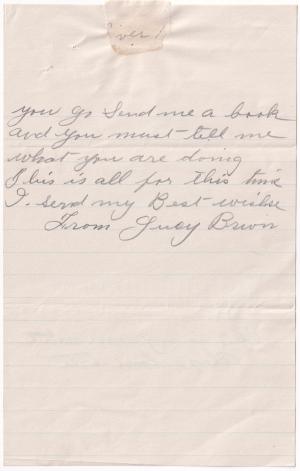 over
you go send me a book
and you must tell me
what you are doing
This is all for this time
I. send my Best wishe
From Lucy Brown